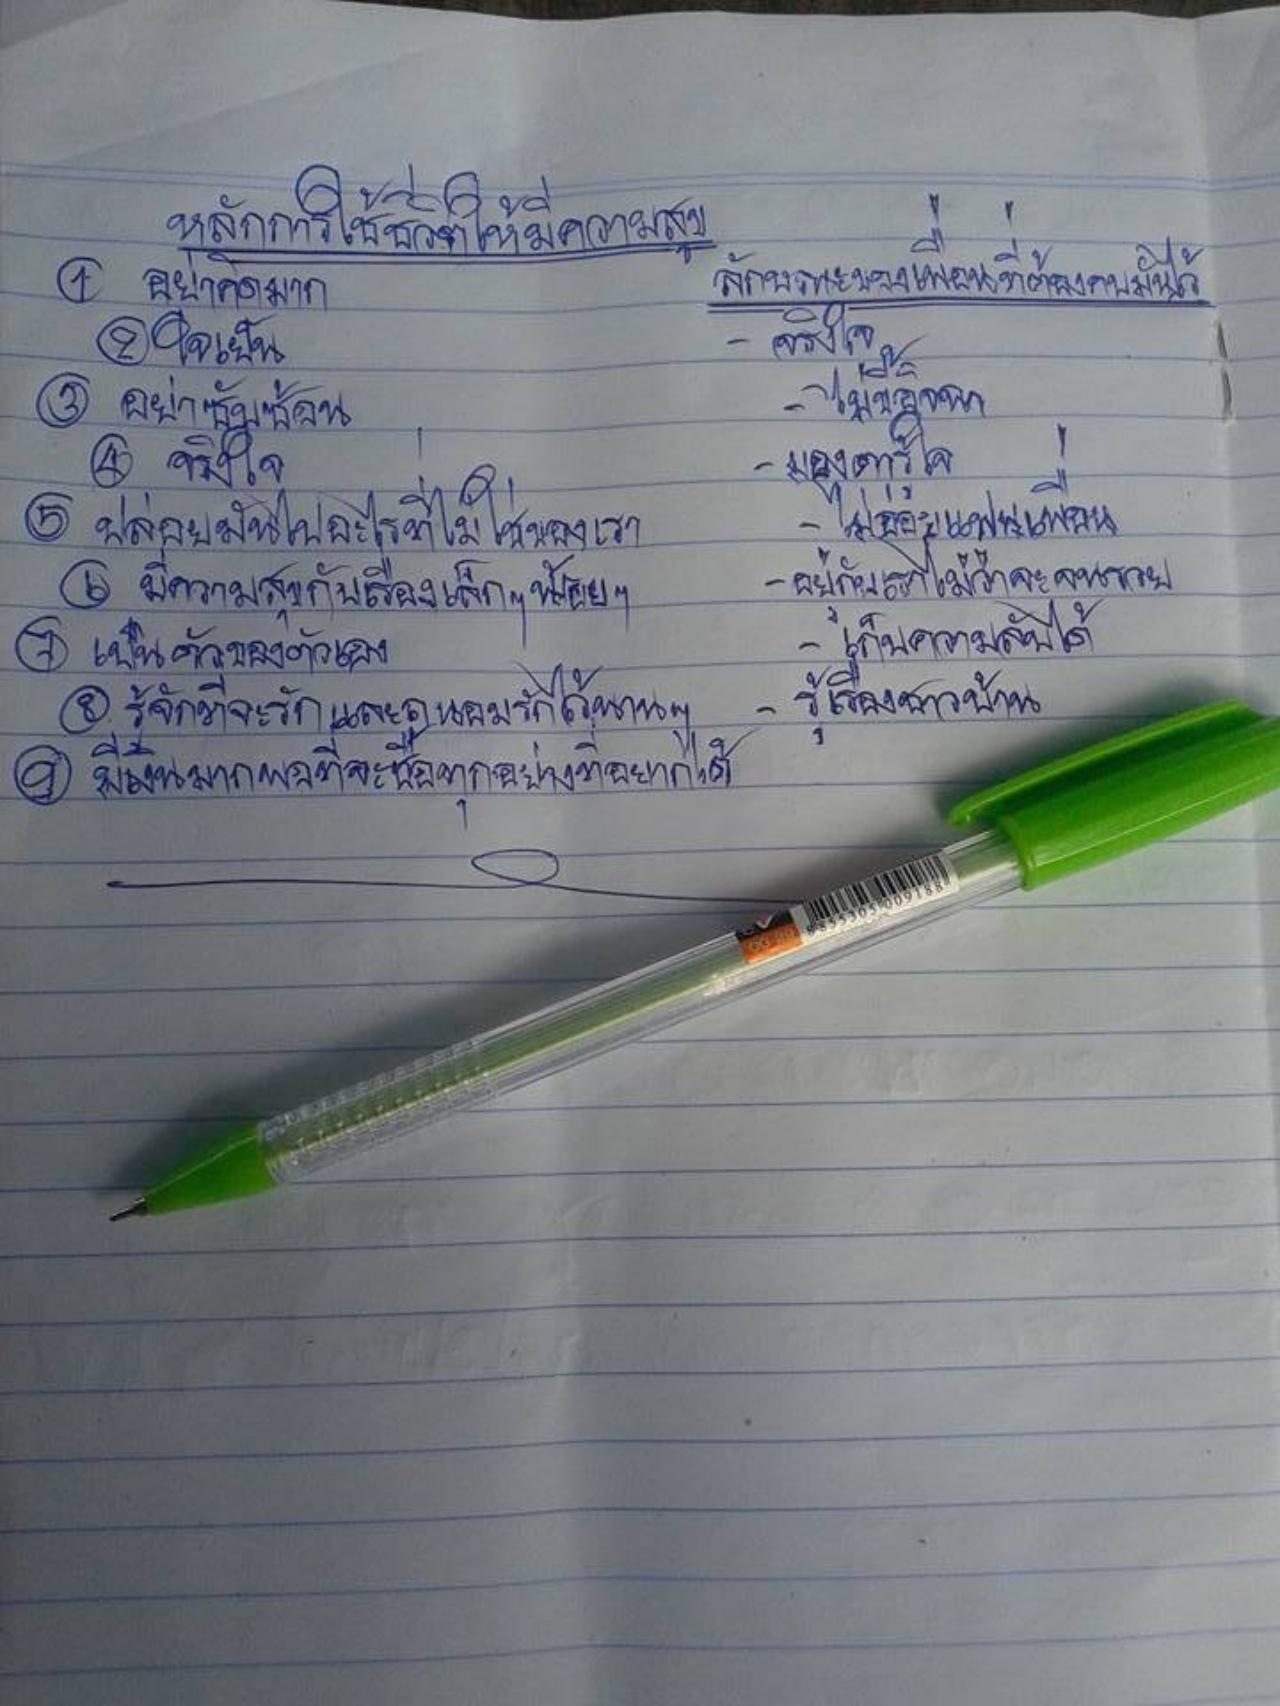 หลักการใช้ชีวิตให้มีความสุข
① อย่าคิดมาก
② ใจเย็น
③ อย่าซับซ้อน
④ จริงใจ
⑤ ปล่อยมันไปอะไรที่ไม่ใช่ของเรา
⑥ มีความสุขกับเรื่องเล็กๆน้อยๆ
⑦ เป็นตัวของตัวเอง
⑧ รู้จักที่จะรัก และถนอมรักไว้นานๆ
⑨ มีเงินมากพอที่จะซื้อทุกอย่างที่อยากได้
ลักษณะของเพื่อนที่ต้องคบมันไว้
- จริงใจ
- ไม่ขี้อิจฉา
- มองตารู้ใจ
- ไม่อ่อยแฟนเพื่อน
- อยู่กับเราไม่ว่าจะจนรวย
- เก็บความลับได้
- รู้เรื่องชาวบ้าน
8855305009188